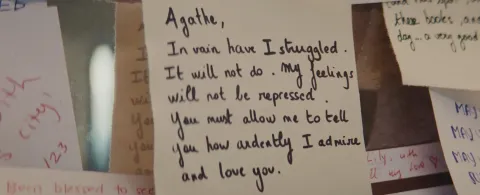 Agathe,
In vain have I struggled.
It will not do. My feelings
will not be repressed.
You must allow me to tell
you how ardently I admire
and love you.
these books, and
day... a very good
city,
123
Been blessed to see
City, with
my love
MAJ
MAJ